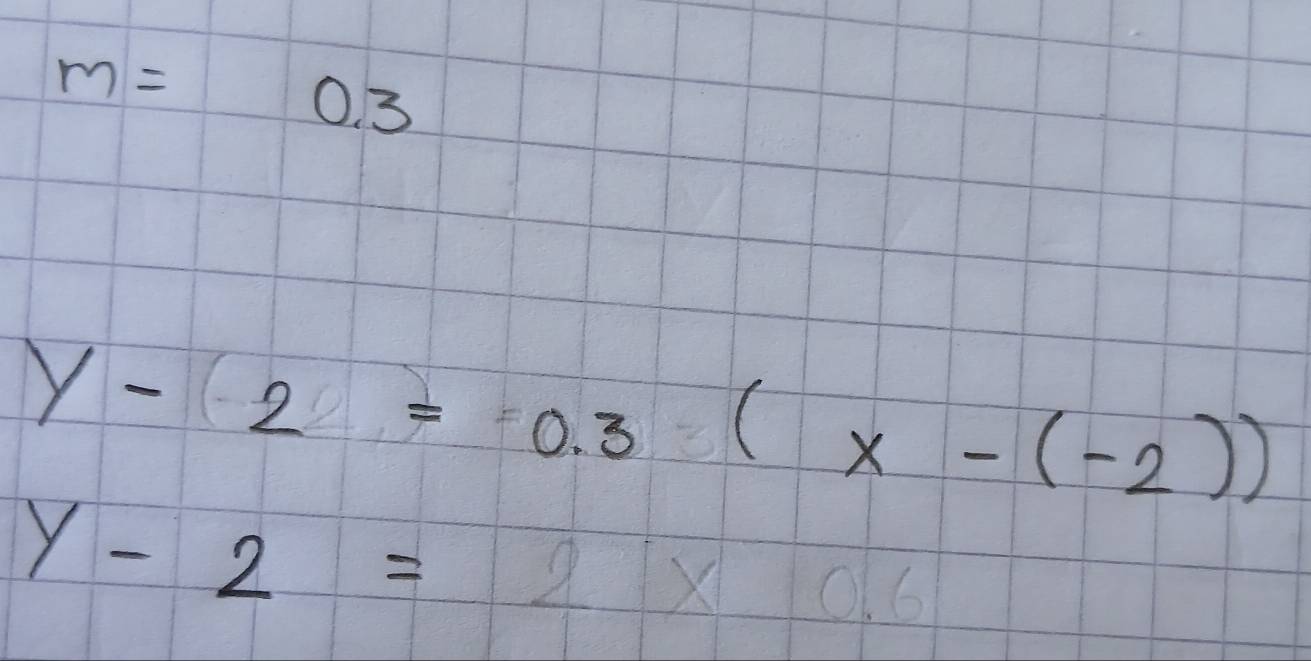 m = 0.3
y - 2 = 0.3 ( x - (-2))
y - 2 = 2 x 0.6